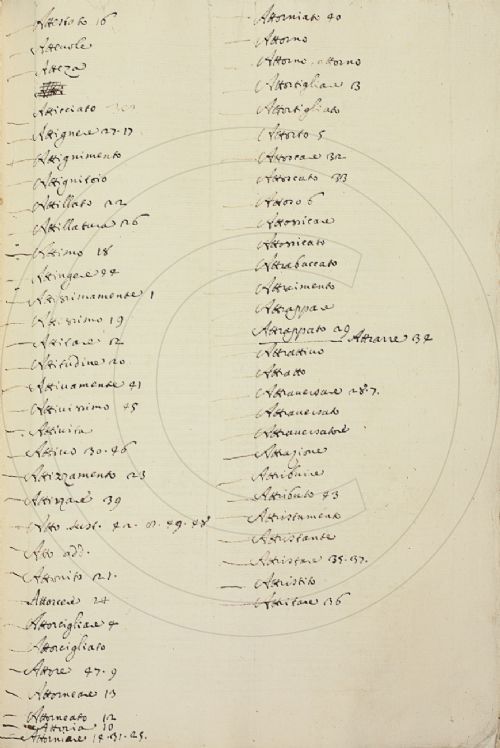 Attestato 16
Attevole
Atteza
Atticciato
Attignere 27.17
Attignimento
Attignitoio
Attillato 22
Attillatura 26
Attimo 18
Attingere 44
Attissimamente 1
Attissimo 19
Attitare 12
Attitudine 20
Attivamente 41
Attivissimo 45
Attività
Attivo 30.46
Attizzamento 23
Attizzare 39
Atto sust. 42. 49.48
Atto add.
Attonito 21.
Attorcere 24
Attorcigliare 4
Attorcigliato
Attore 47.9
Attorneare 13
Attorneato 12
Attoria 10
Attorniare 14.31.25.
Attorniato 40
Attorno
Attorno attorno
Attortigliare 13
Attortigliato
Attorto 5
Attoscare 32
Attoscato 33
Attoso 6
Attossicare
Attossicato
Attrabaccato
Attraimento
Attrappare
Attrappato 29
Attrarre 34
Attrattivo
Attratto
Attraversare 28.7.
Attraversato
Attraversatore
Attrazione
Attribuire
Attributo 43
Attristamento
Attristante
Attristare 35.37.
Attristito
Attritare 36